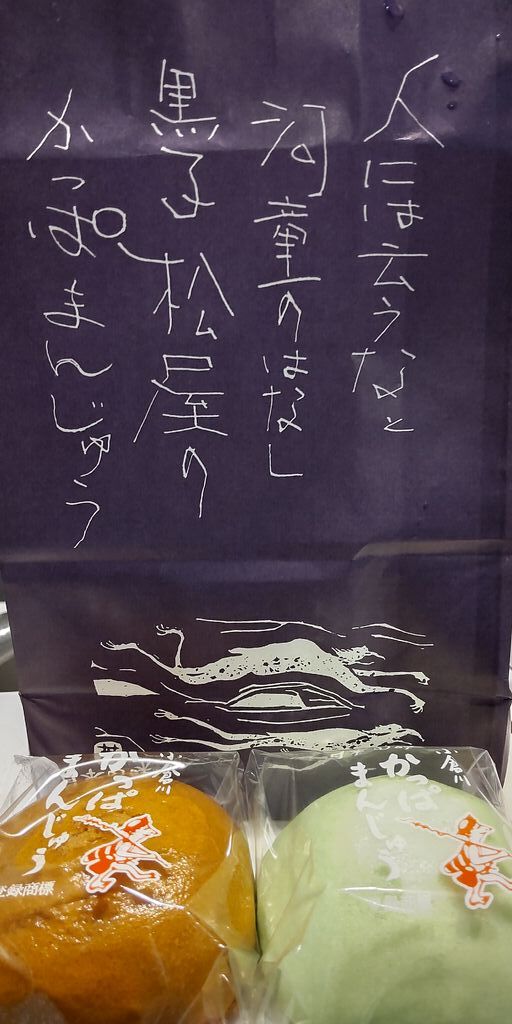 人には云うなと
河童のはなし
黒子 松屋の
かっぱまんじゅう
小倉川
かっぱ
まんじゅう
登録商標
小倉川
かっぱ
まんじゅう